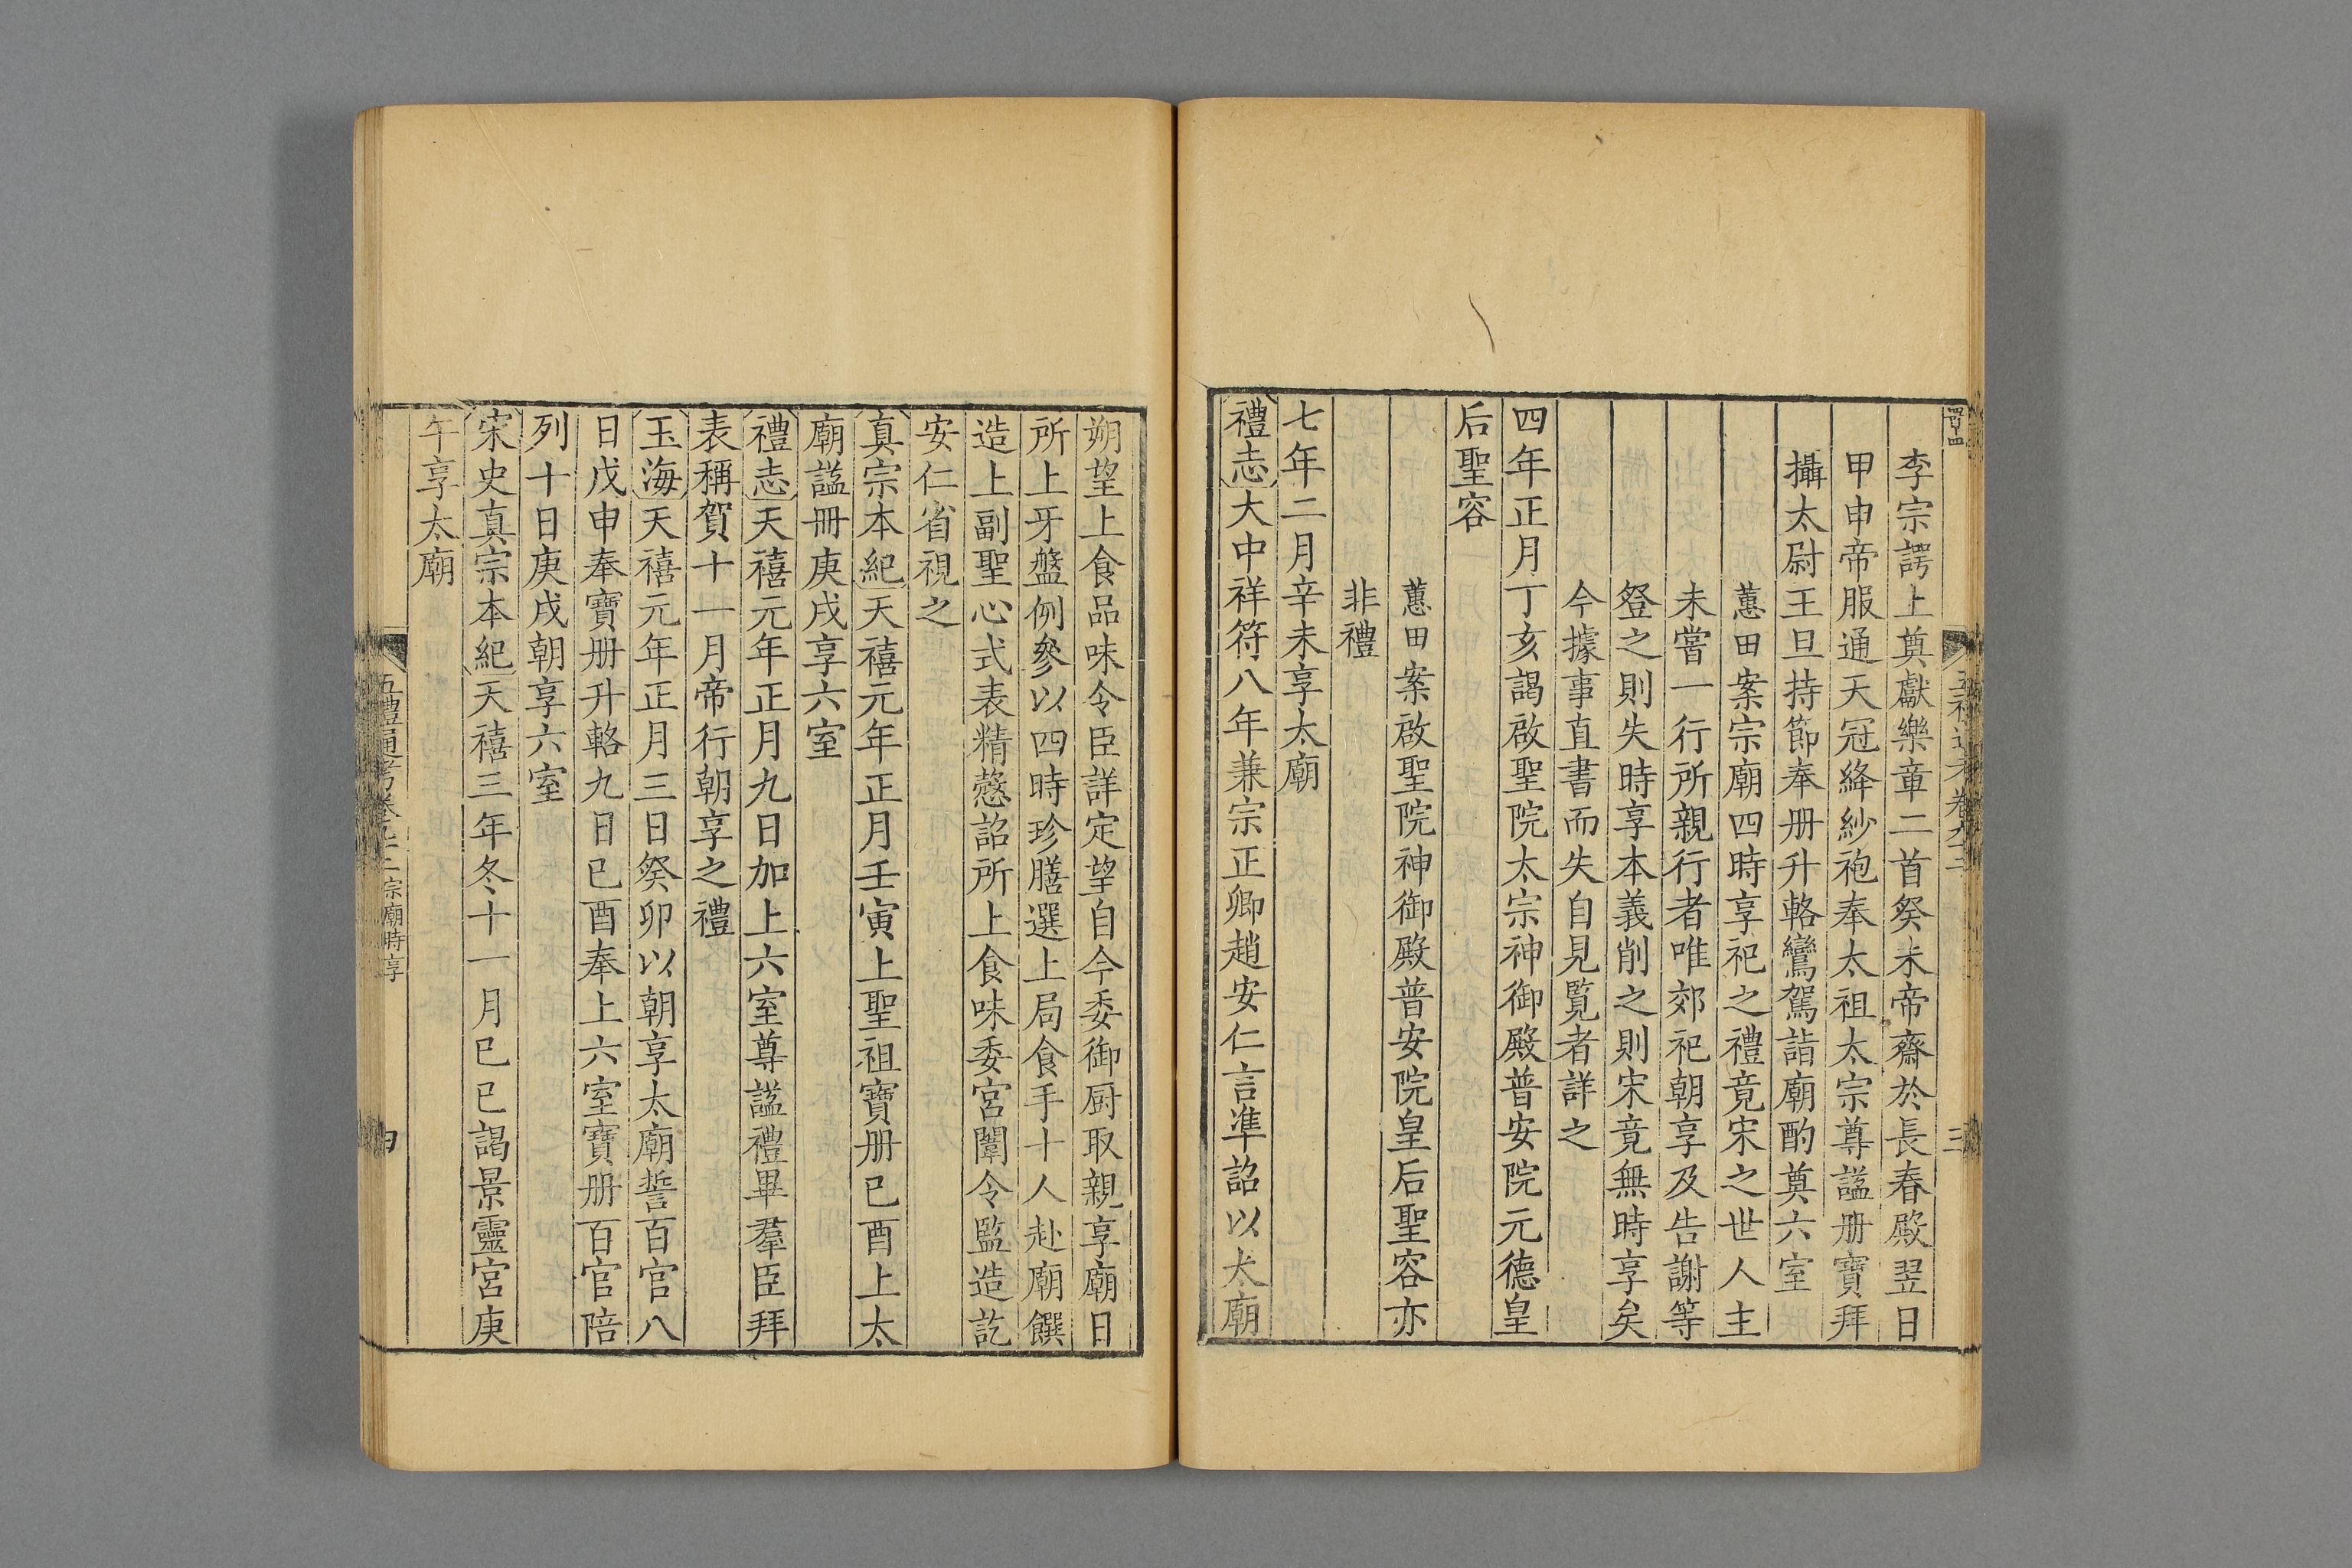 李宗諤上奠獻樂章二首癸未帝齋於長春殿翌日
甲申帝服通天冠絳紗袍奉太祖太宗尊諡册寶拜
攝太尉王旦持節奉册升輅鸞駕詣廟酌奠六室
蕙田案宗廟四時享祀之禮竟宋之世人主
未嘗一行所親行者唯郊祀朝享及告謝等
登之則失時享本義削之則宋竟無時享矣
今據事直書而失自見覧者詳之
四年正月丁亥謁啟聖院太宗神御殿普安院元德皇
后聖容
蕙田案啟聖院神御殿普安院皇后聖容亦
非禮
七年二月辛未享太廟
禮志大中祥符八年兼宗正卿趙安仁言準詔以太廟
朔望上食品味令臣詳定望自今委御厨取親享廟日
所上牙盤例參以四時珍膳選上局食手十人赴廟饌
造上副聖心式表精慤詔所上食味委宮闈令監造訖
安仁省視之
真宗本紀天禧元年正月壬寅上聖祖寶册己酉上太
廟諡冊庚戌享六室
禮志天禧元年正月九日加上六室尊諡禮畢羣臣拜
表稱賀十一月帝行朝享之禮
玉海天禧元年正月三日癸卯以朝享太廟誓百官八
日戊申奉寶册升輅九日己酉奉上六室寶册百官陪
列十日庚戌朝享六室
宋史真宗本紀天禧三年冬十一月已巳謁景靈宮庚
午享太廟
五禮通考卷九十二 宗廟時享